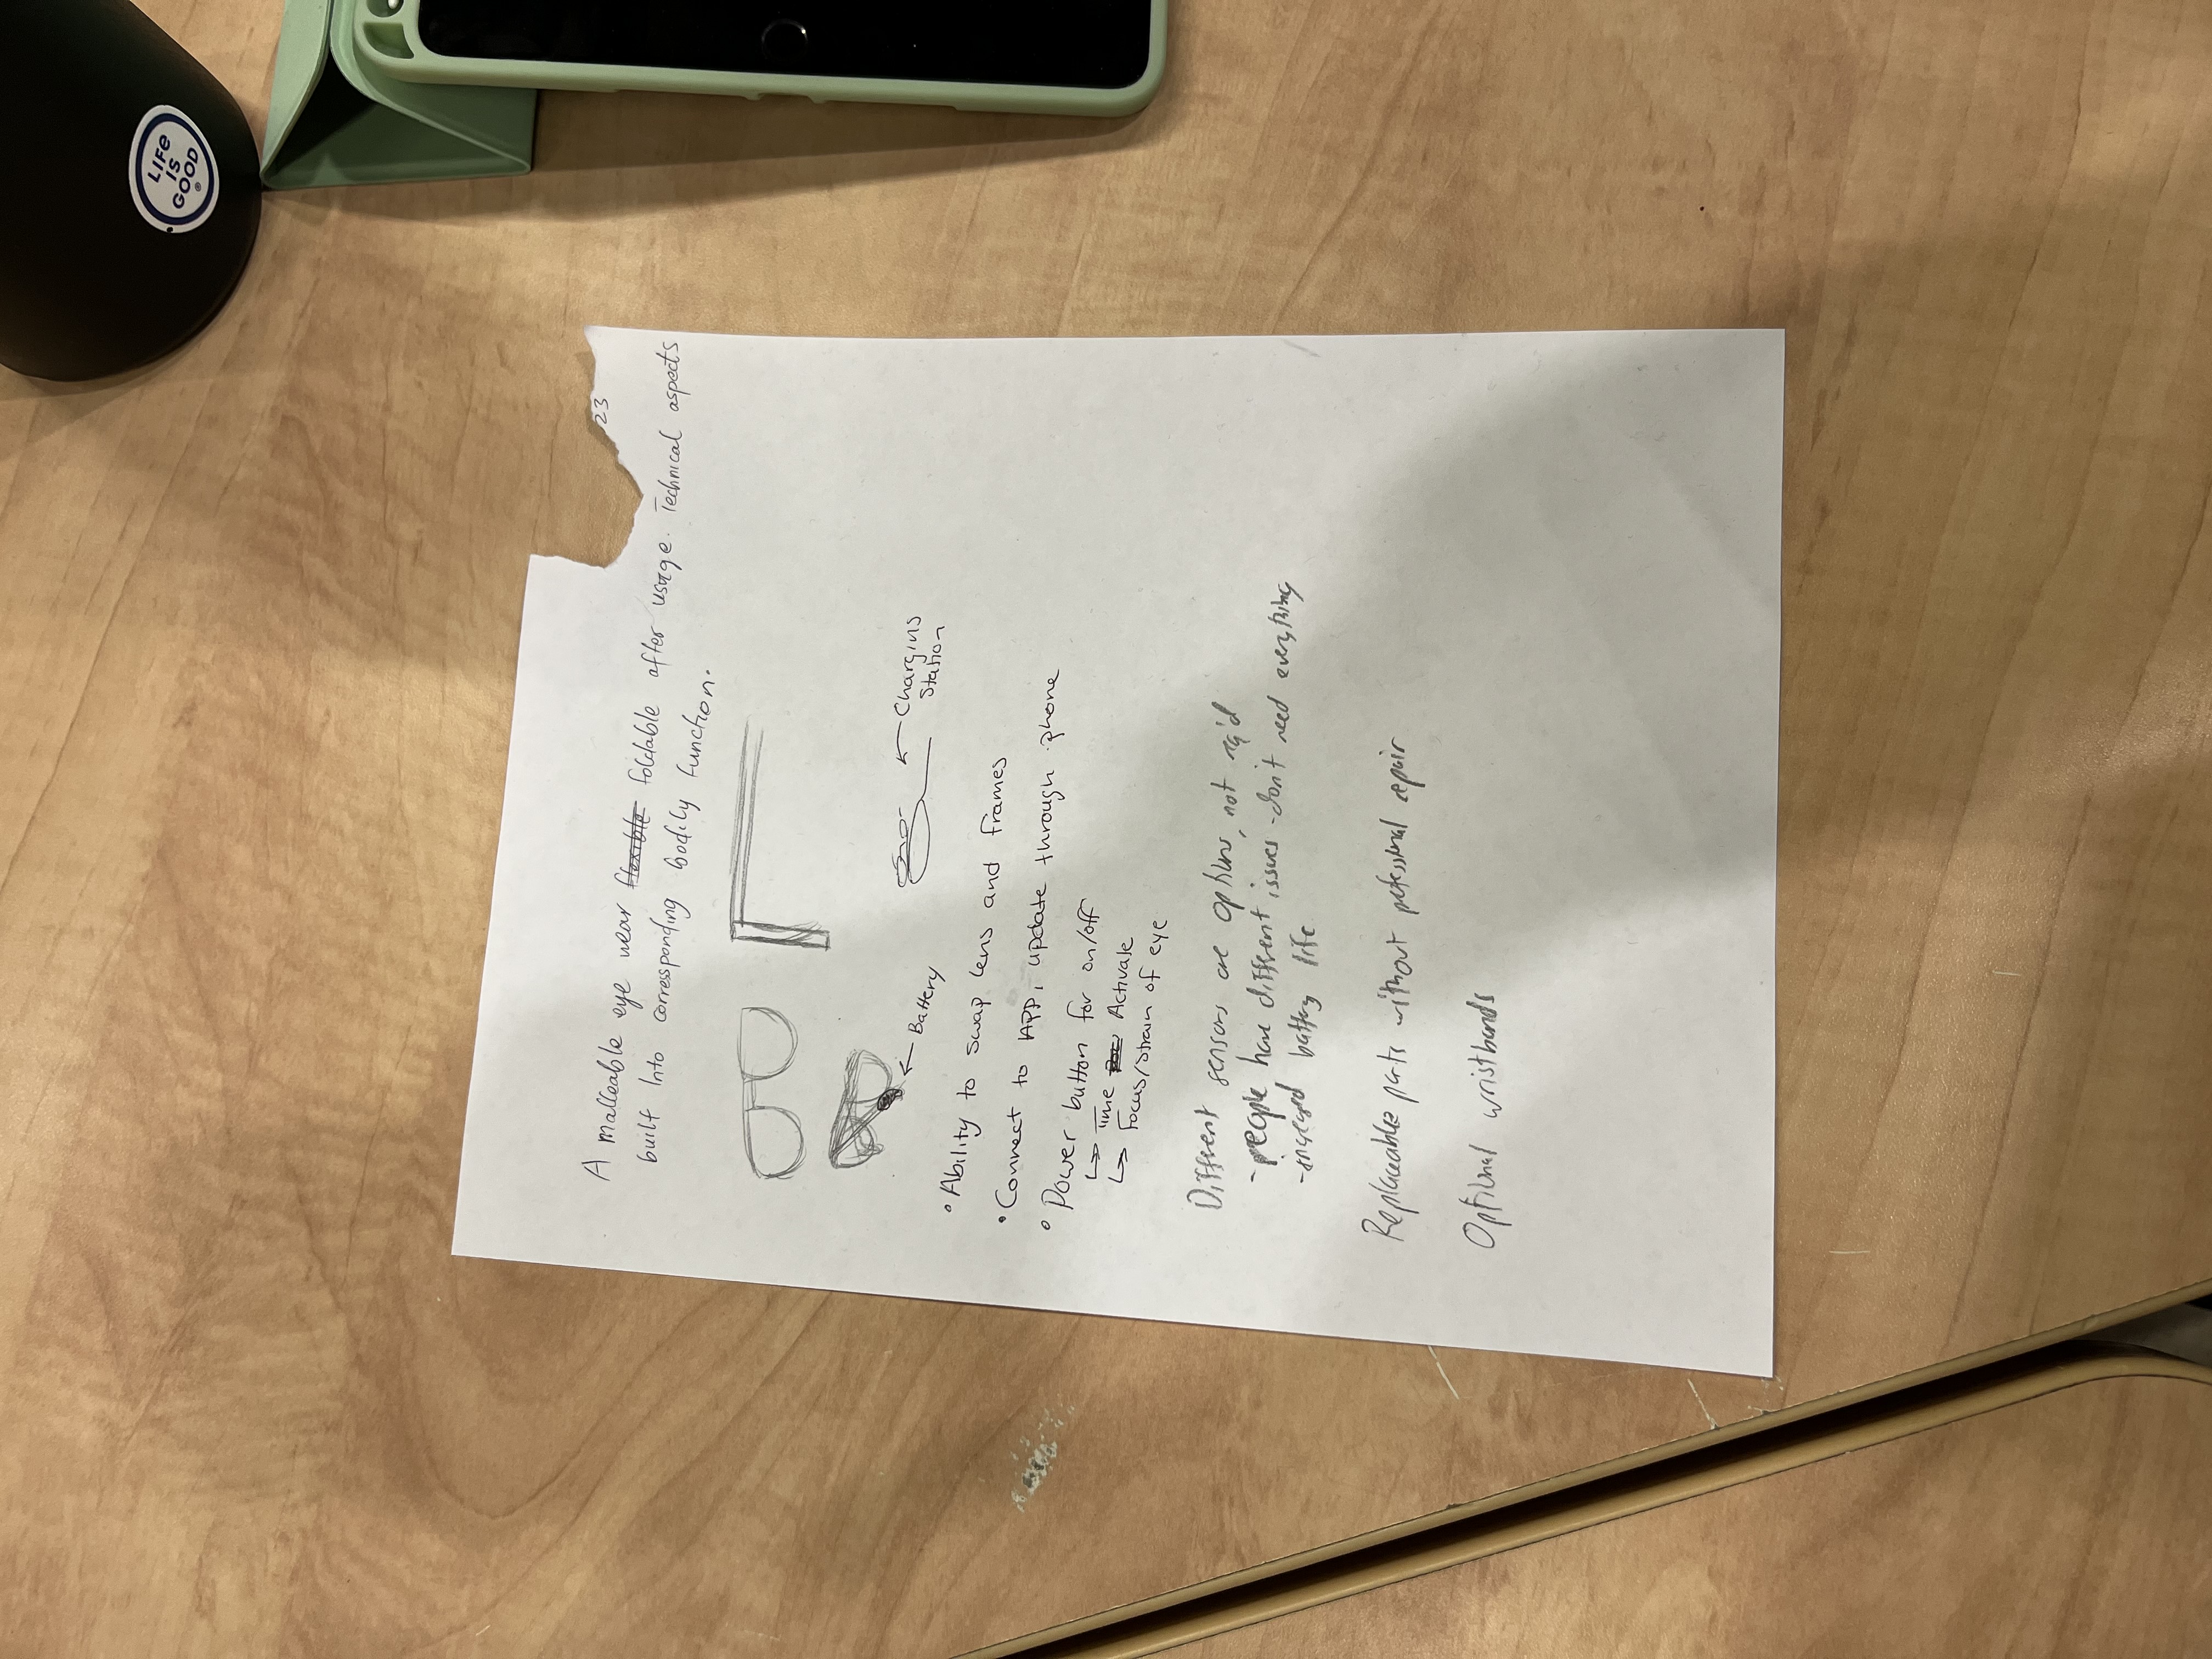 LIFE
IS
GOOD
®
23
A malleable eye wear flexible foldable after usage. Technical aspects
built Into corresponding bodily function.
← Battery
← Charging
Station
• Ability to swap lens and frames
• Connect to APP, update through phone
• Power button for on/off
↳ Time Activate
↳ Focus/Strain of eye
Different sensors are options, not req'd
- people have different issues - don't need everything
- increased battery life
Replaceable parts without professional repair
Optional wristbands